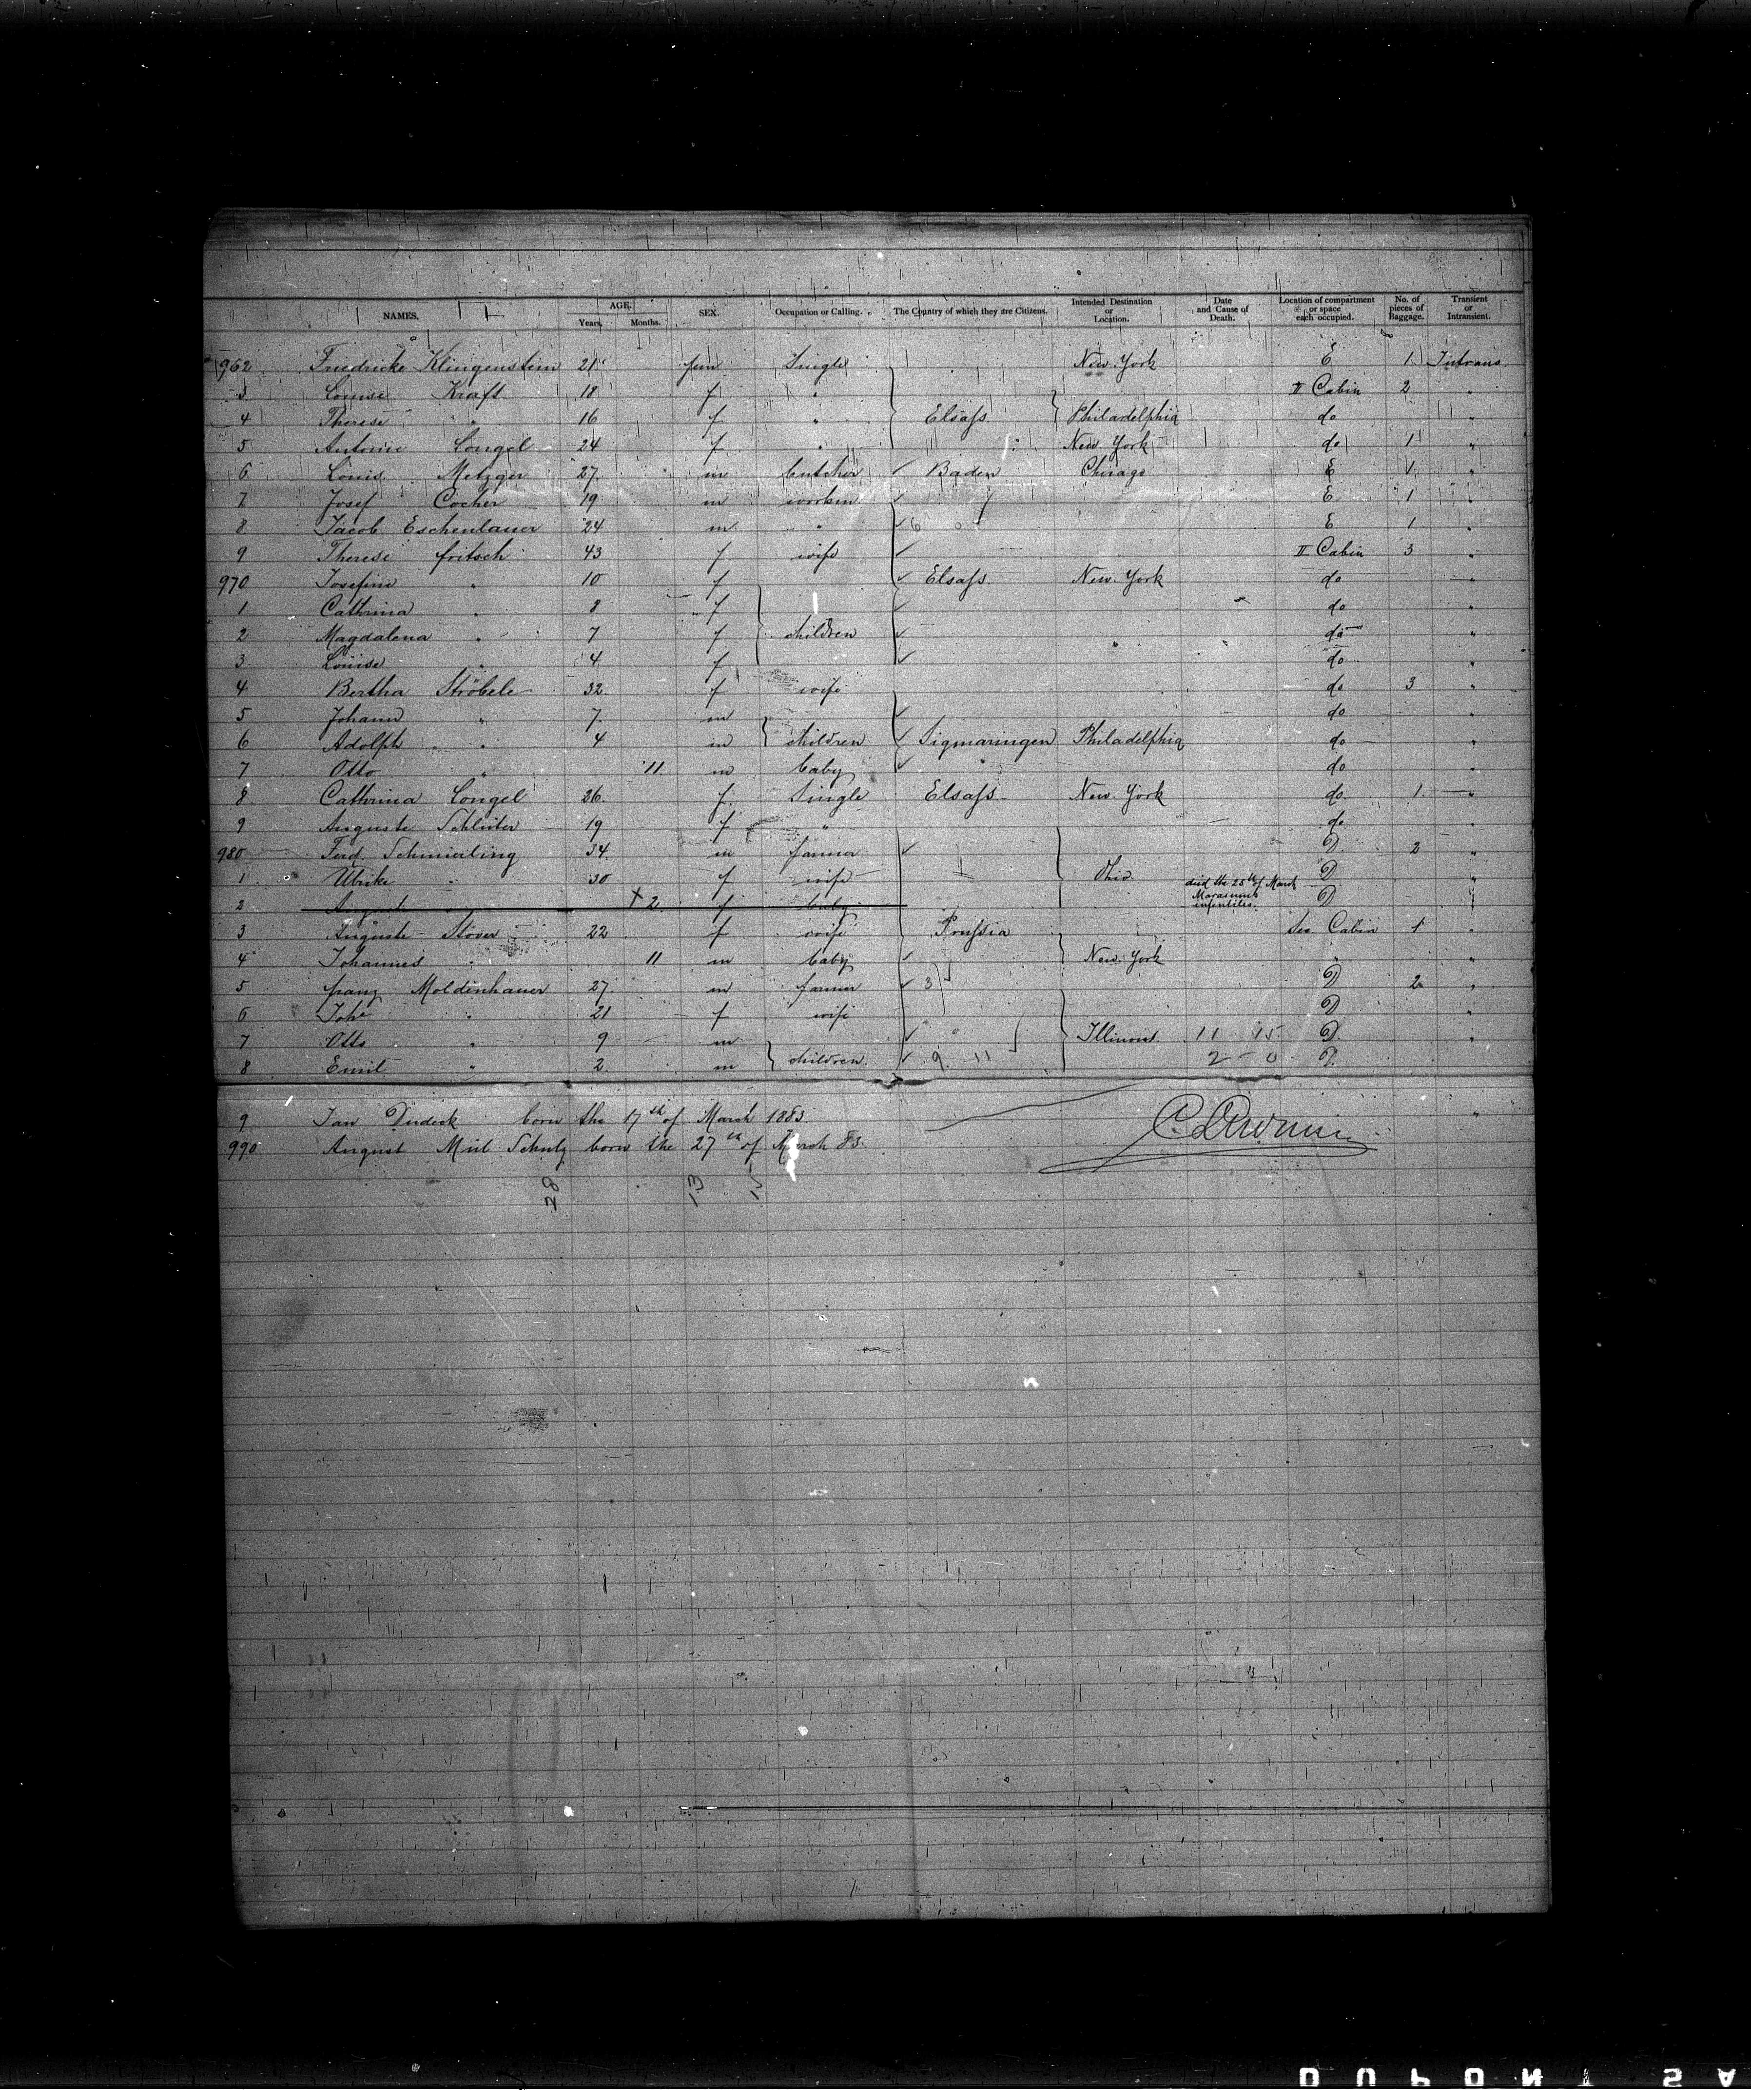 NAMES. AGE. Years. Months. SEX. Occupation or Calling. The Country of which they are Citizens. Intended Destination or Location. Date and Cause of Death. Location of compartment or space each occupied. No. of pieces of Baggage. Transient or Intransient.
962 Friedricke Klingenstein 21 fem Single New York E 1 Intrans
3 Louise Kraft 18 f " II Cabin 2 "
4 Therese " 16 f " Elsaſs Philadelphia do "
5 Antoine Longel 24 f " New York do 1 "
6 Louis Metzger 27 m butcher Baden Chicago E 1 "
7 Josef Cocher 19 m workm E 1 "
8 Jacob Eschenlauer 24 m " E 1 "
9 Therese fritsch 43 f wife II Cabin 3 "
970 Josefine " 10 f Elsaſs New York do "
1 Cathrina " 8 f do "
2 Magdalena " 7 f children do "
3 Louise " 4 f do "
4 Bertha Ströbele 32 f wife do 3 "
5 Johann " 7 m do "
6 Adolph " 4 m children Sigmaringen Philadelphia do "
7 Otto " 11 m baby do "
8 Cathrina Longel 26 f Single Elsaſs New York do 1 "
9 Auguste Schlüter 19 f " do "
980 Ferd. Schmierling 34 m farmer D 2 "
1 Ulrike " 30 f wife Ohio D "
2 August + 2 f baby died the 25th of March D "
3 Auguste Stöver 22 f wife Pruſsia Sec Cabin 1 "
4 Johannes " 11 m baby New York " "
5 franz Moldenhauer 27 m farmer 3 D 2 "
6 Johe " 21 f wife D "
7 Otto " 9 m " Illinois 11 15 D "
8 Emil " 2 m children 9 11 2 - 0 D
9 Jan Dudeck born the 17th of March 1883 "
990 August Schulz born the 27th of March 83.
28 13 15
DUPONT SA